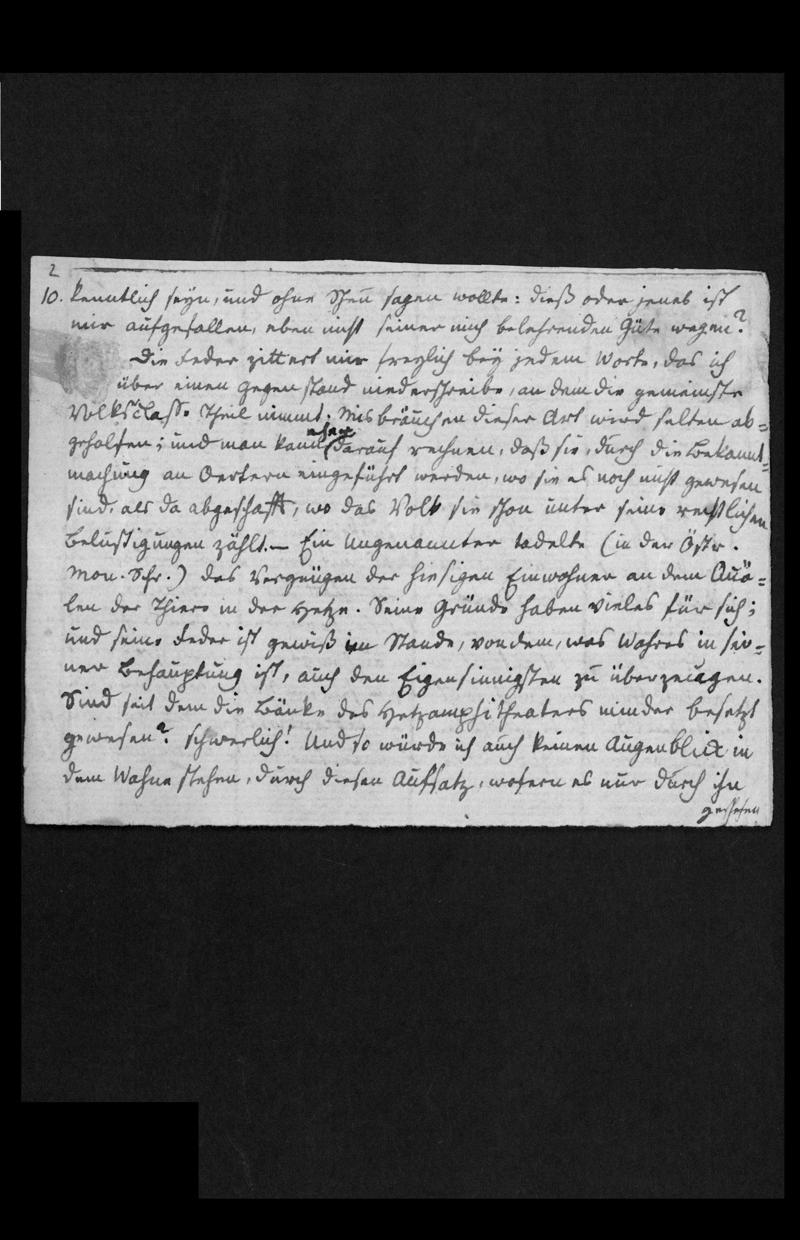 2
10. kenntlich seyn, und ohne Scheu sagen wollte: dieß oder jenes ist
mir aufgefallen, eben nicht seiner mich belehrenden Güte wegen?
Die Feder zittert mir freylich bey jedem Worte, das ich
über einen Gegenstand niederschreibe, an dem die gemeinste
Volksclasse Theil nimmt. Misbräuchen dieser Art wird selten ab=
geholfen; und man kann
eher
darauf rechnen, daß sie, durch die Bekannt=
machung an Oertern eingeführt werden, wo sie es noch nicht gewesen
sind, als da abgeschafft, wo das Volk sie schon unter seine rechtlichen
Belustigungen zählt. — Ein Ungenannter tadelte (in der Östr.
Mon. Schr.) das Vergnügen der hiesigen Einwohner an dem Quä=
len der Thiere in der Hetze. Seine Gründe haben vieles für sich;
und seine Feder ist gewiß im Stande, von dem, was Wahres in sei=
ner Behauptung ist, auch den Eigensinnigsten zu überzeugen.
Sind seit dem die Bänke des Hetzamphitheaters minder besetzt
gewesen? Schwerlich! Und so würde ich auch keinen Augenblick in
dem Wahne stehen, durch diesen Aufsatz, wofern es nur durch ihn
geschehen